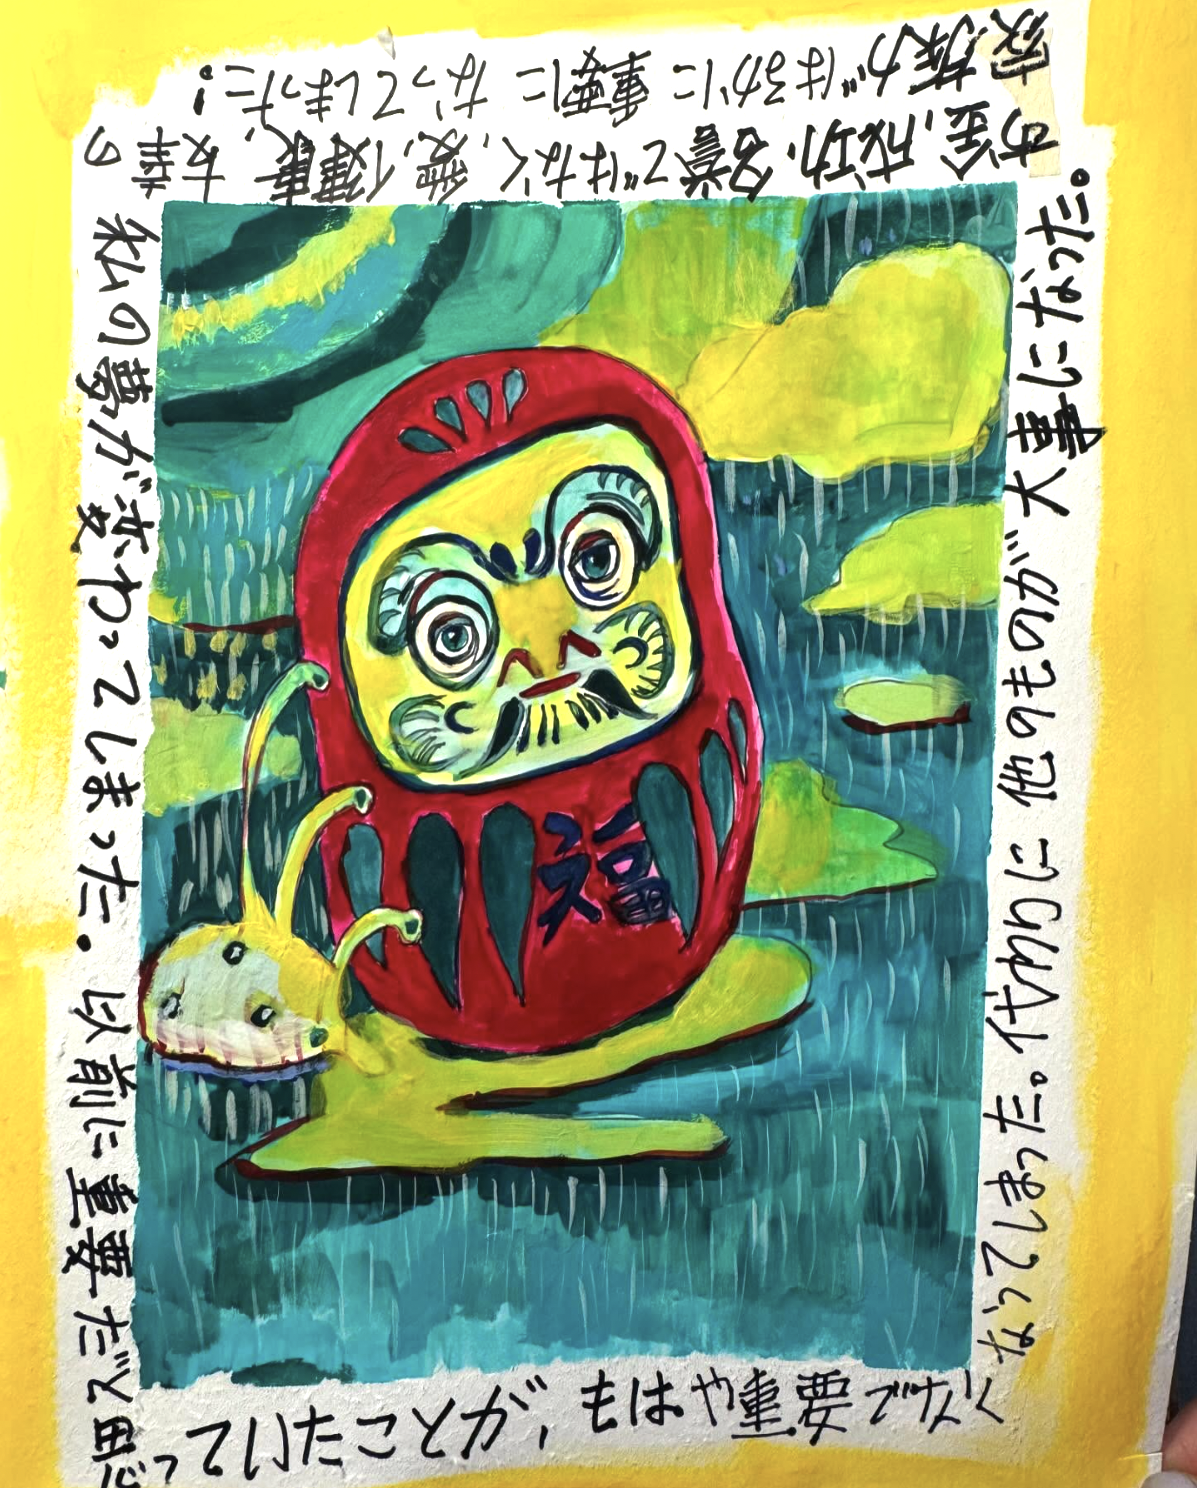 私の夢が変わってしまった。以前に重要だと思
っていたことが、もはや重要ではなく
なってしまった。代わりに他のものが大事になった。
お金,成功,名誉ではなく,愛,健康,友
家族がはるかに重要になってしまった!
福